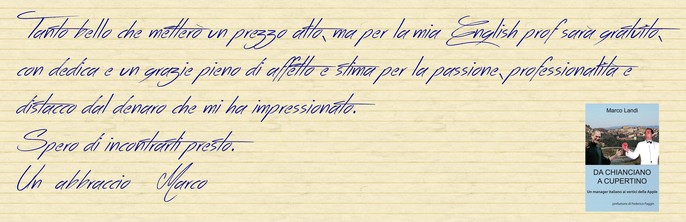 Tanto bello che metterò un prezzo alto, ma per la mia English prof sarà gratuito,
con dedica e un grazie pieno di affetto e stima per la passione, professionalità e
distacco dal denaro che mi ha impressionato.
Spero di incontrarti presto.
Un abbraccio Marco
Marco Landi
DA CHIANCIANO
A CUPERTINO
Un manager italiano ai vertici della Apple
prefazione di Federico Faggin